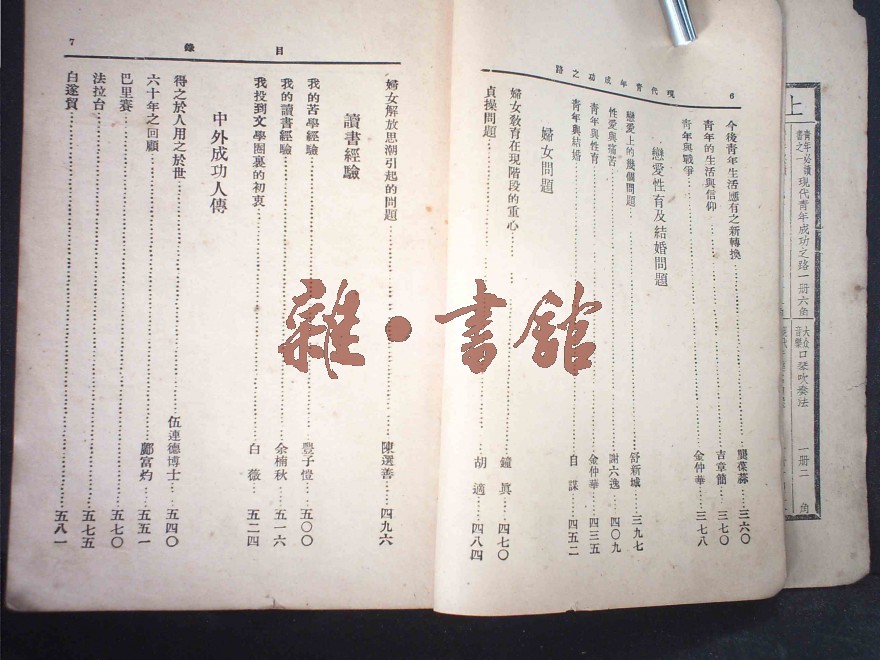 上
青年必讀書之一 現代青年成功之路 一冊 六角
大众音樂 口琴吹奏法 一冊 二角
6
現代青年成功之路
今後青年生活應有之新轉換……龔葆蓀…三六〇
青年的生活與信仰……吉章簡…三七〇
青年與戰爭……金仲華…三七八
戀愛性育及結婚問題
戀愛上的幾個問題……舒新城…三九七
性愛與痛苦……謝六逸…四〇九
青年與性育……金仲華…四三五
青年與結婚……自謀…四五二
婦女問題
婦女教育在現階段的重心……鐘眞…四七〇
貞操問題……胡適…四八四
目錄
7
婦女解放思潮引起的問題……陳選善…四九六
讀書經驗
我的苦學經驗……豐子愷…五〇〇
我的讀書經驗……余楠秋…五一六
我投到文學圈裏的初衷……白薇…五二四
中外成功人傳
得之於人用之於世……伍連德博士…五四〇
六十年之回顧……鄺富灼…五五一
巴里賽……五七〇
法拉台……五七五
白遂賀……五八一
雜·書館